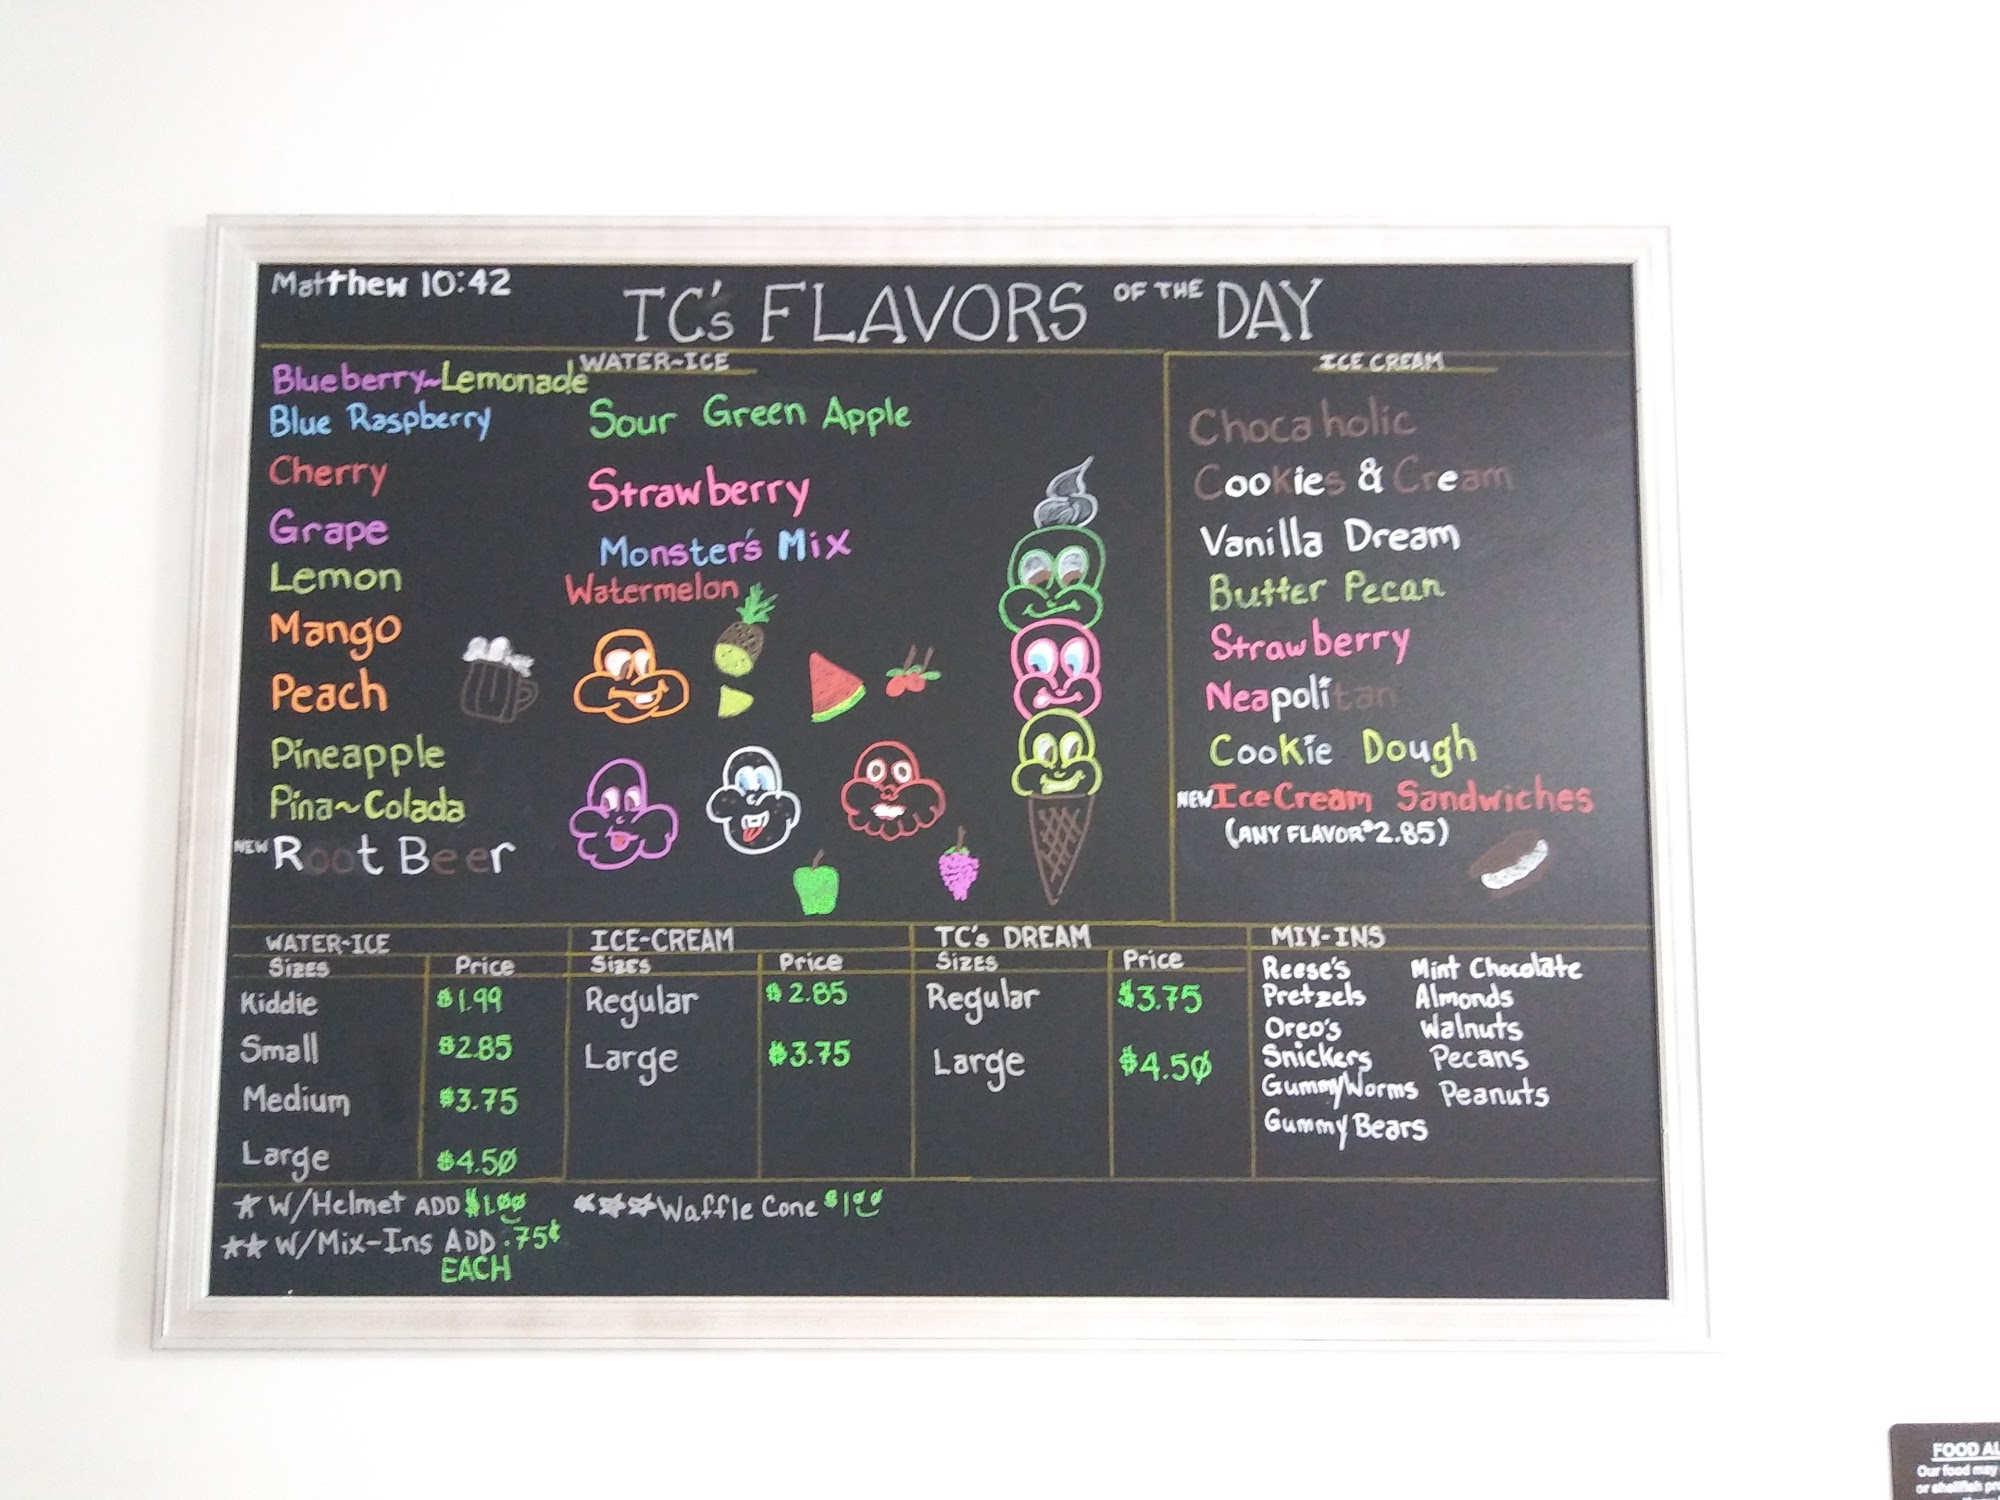 Matthew 10:42
TC's FLAVORS OF THE DAY
WATER-ICE
Blueberry~Lemonade
Blue Raspberry
Cherry
Grape
Lemon
Mango
Peach
Pineapple
Pina~Colada
NEW Root Beer
Sour Green Apple
Strawberry
Monster's Mix
Watermelon
ICE CREAM
Chocaholic
Cookies & Cream
Vanilla Dream
Butter Pecan
Strawberry
Neapolitan
Cookie Dough
NEW Ice Cream Sandwiches
(ANY FLAVOR $2.85)
WATER-ICE
Sizes Price
Kiddie $1.99
Small $2.85
Medium $3.75
Large $4.50
ICE-CREAM
Sizes Price
Regular $2.85
Large $3.75
TC's DREAM
Sizes Price
Regular $3.75
Large $4.50
MIX-INS
Reese's Mint Chocolate
Pretzels Almonds
Oreo's Walnuts
Snickers Pecans
Gummy Worms Peanuts
Gummy Bears
★ W/Helmet ADD $1.00
★★★ Waffle Cone $1.00
★★ W/Mix-Ins ADD .75¢
EACH
FOOD
Our food may
or shellfish